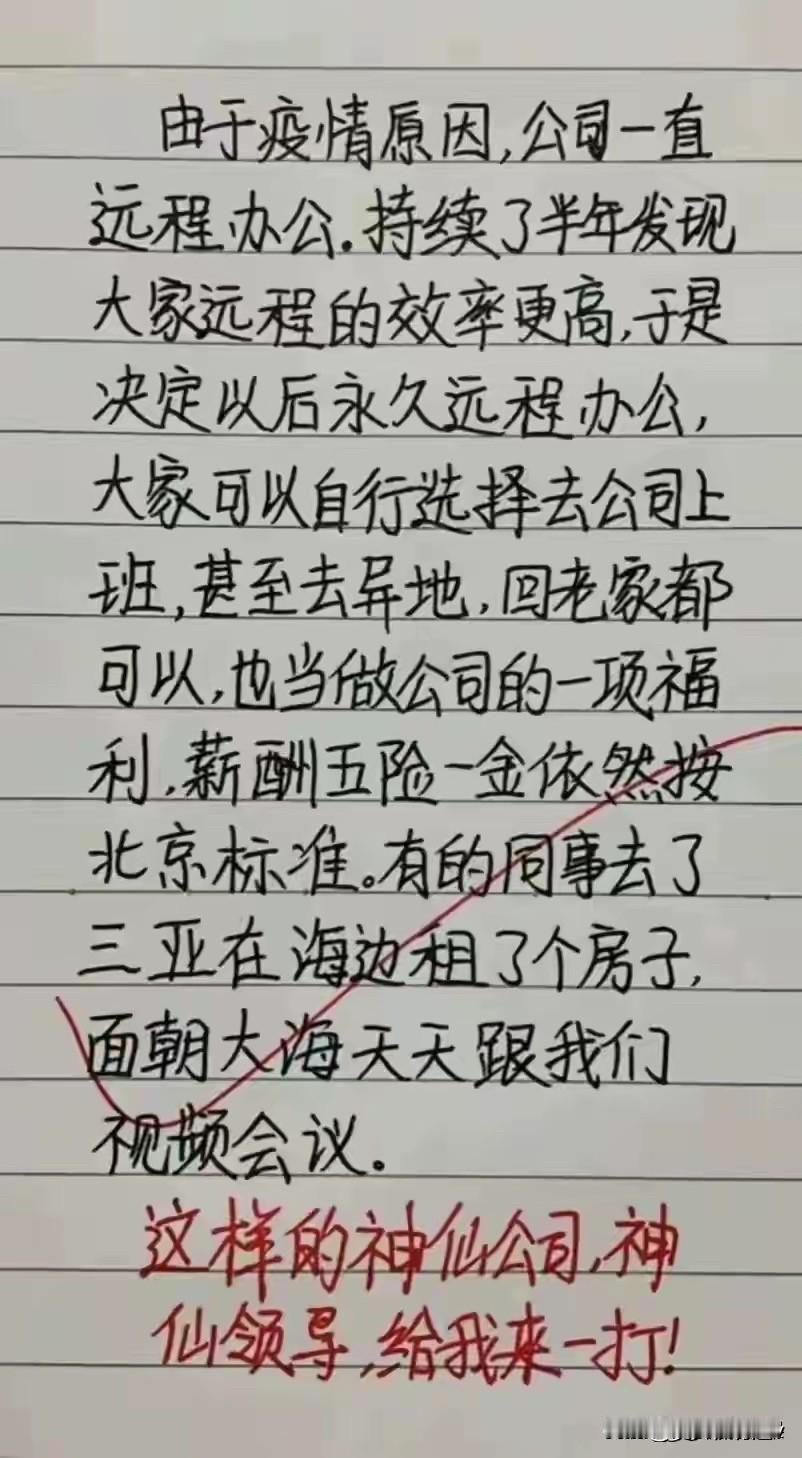 由于疫情原因,公司一直
远程办公.持续了半年发现
大家远程的效率更高,于是
决定以后永久远程办公,
大家可以自行选择去公司上
班,甚至去异地,回老家都
可以,也当做公司的一项福
利,薪酬五险一金依然按
北京标准。有的同事去了
三亚在海边租了个房子,
面朝大海天天跟我们
视频会议。
这样的神仙公司,神
仙领导,给我来一打!